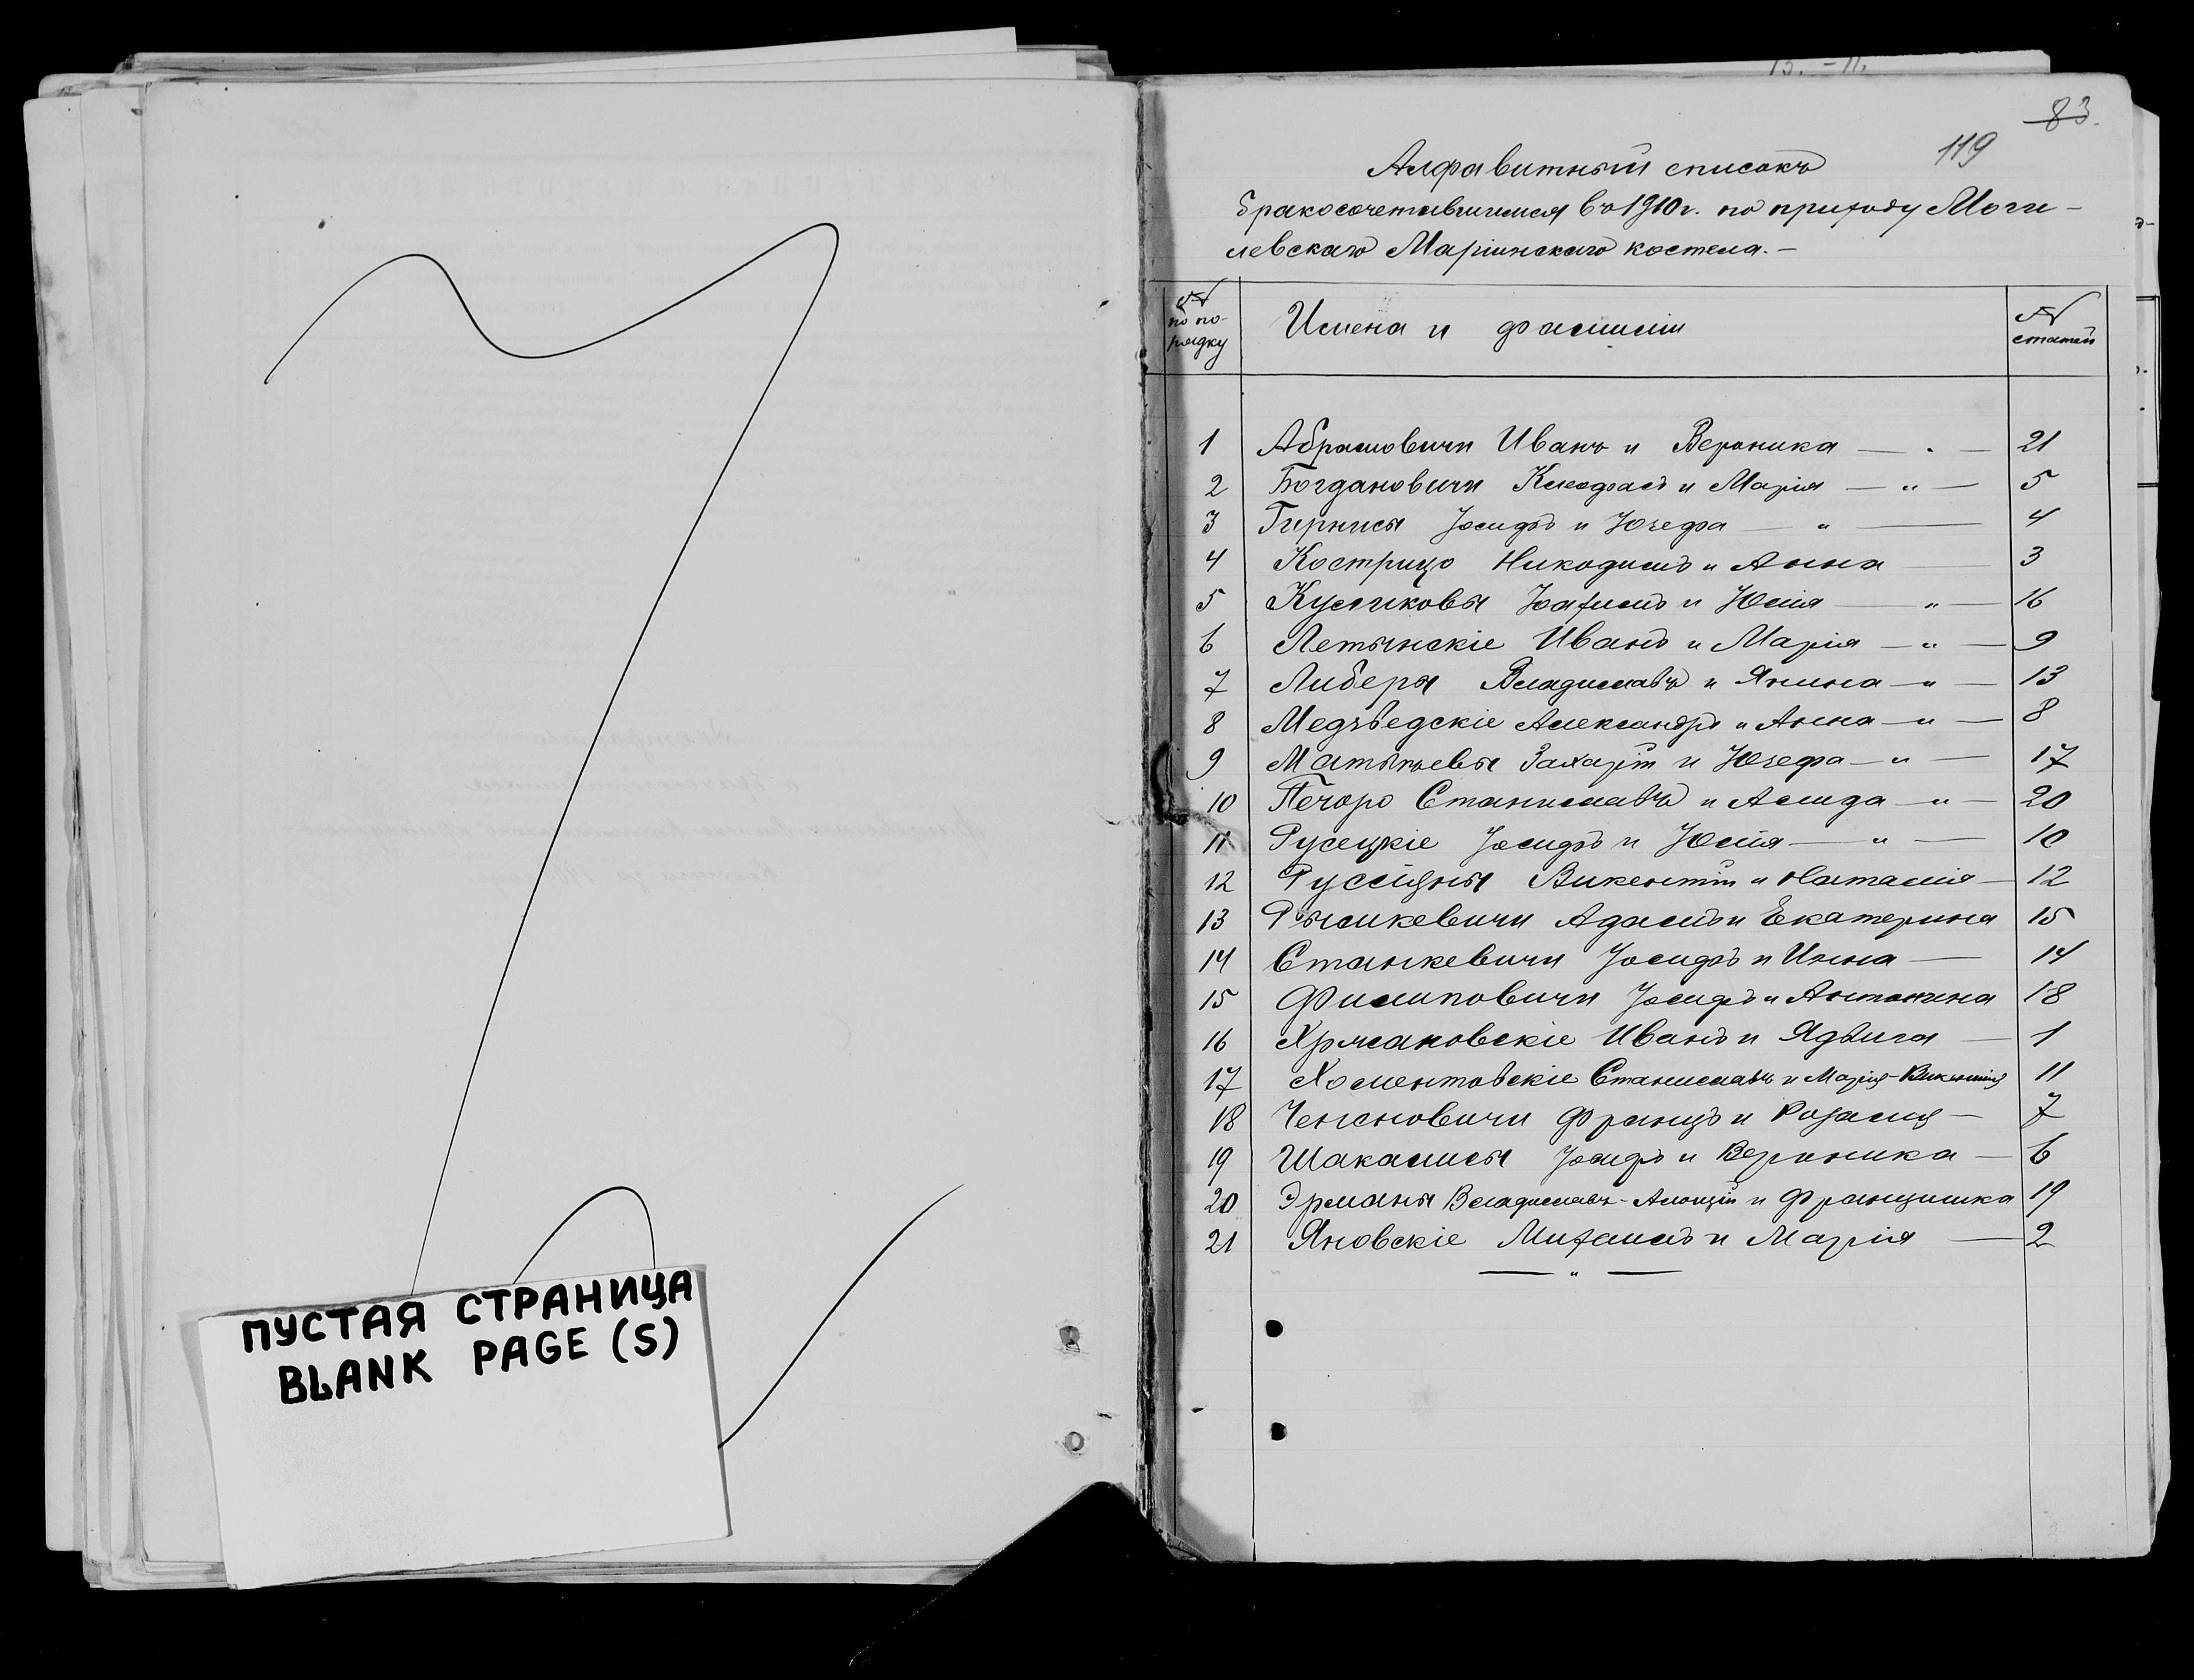 ПУСТАЯ СТРАНИЦА
BLANK PAGE (S)
83.
119
Алфавитный списокъ
бракосочетавшимся въ 1910 г. по приходу Моги-
левскаго Маріинскаго костела.-
№ по по-рядку Имена и фамиліи № статей
1 Абрамовичи Иванъ и Вероника 21
2 Богдановичи Клеофасъ и Марія 5
3 Гирнисы Іосифъ и Юзефа 4
4 Кострицо Никодимъ и Анна 3
5 Кусликовы Іоахимъ и Юлія 16
6 Летынскіе Иванъ и Марія 9
7 Либеры Владиславъ и Янина 13
8 Медвѣдскіе Александръ и Анна 8
9 Матыньевы Захарій и Юзефа 17
10 Печоро Станиславъ и Амида 20
11 Русецкіе Іосифъ и Юлія 10
12 Викентій и Наталія 12
13 Рымкевичи Адамъ и Екатерина 15
14 Станкевичи Іосифъ и Инна 14
15 Филиповичи Іосифъ и Антонина 18
16 Хржановскіе Иванъ и Ядвига 1
17 Хоментовскіе Станиславъ и Марія-Викентія 11
18 Францъ и Розалія 7
19 Шакалисы Іосифъ и Вероника 6
20 Эрманы Владиславъ-Алоизій и Францишка 19
21 Яновскіе Михаилъ и Марія 2